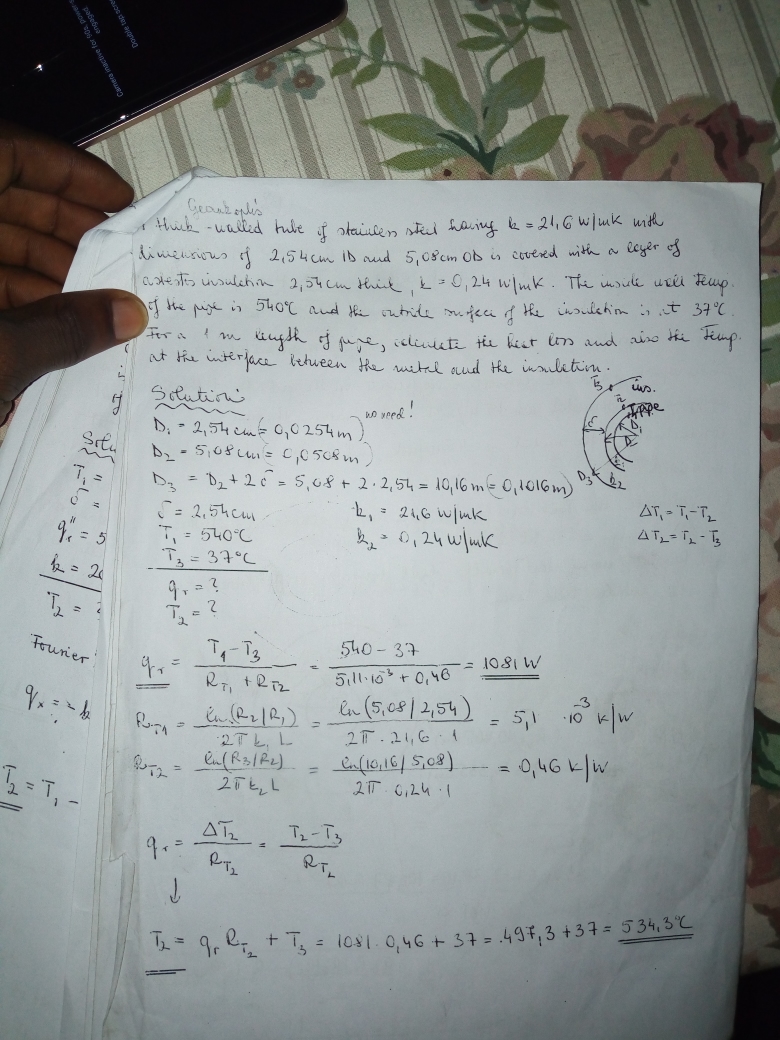 Camera inactive for NO, power s
engaged
Double tap screen
Geankoplis
thick-walled tube of stainless steel having k = 21,6 W/mK with
dimensions of 2,54 cm ID and 5,08 cm OD is covered with a layer of
asbestos insulation 2,54 cm thick, k = 0,24 W/mK. The inside wall temp.
of the pipe is 540°C and the outside surface of the insulation is at 37°C.
For a 1 m length of pipe, calculate the heat loss and also the temp.
at the interface between the metal and the insulation.
Solution
no need!
D₁ = 2,54 cm (= 0,0254 m)
D₂ = 5,08 cm (= 0,0508 m)
D₃ = D₂ + 2δ = 5,08 + 2 · 2,54 = 10,16 m (= 0,1016 m)
δ = 2,54 cm k₁ = 21,6 W/mK
T₁ = 540°C k₂ = 0,24 W/mK
T₃ = 37°C
qr = ?
T₂ = ?
T₃ ins.
pipe
D₃ k₂
ΔT₁ = T₁ - T₂
ΔT₂ = T₂ - T₃
qr = (T₁ - T₃) / (R_T₁ + R_T₂) = (540 - 37) / (5,11·10⁻³ + 0,46) = 1081 W
R_T₁ = ln(R₂/R₁) / 2π k₁ L = ln(5,08/2,54) / 2π · 21,6 · 1 = 5,1 · 10⁻³ K/W
R_T₂ = ln(R₃/R₂) / 2π k₂ L = ln(10,16/5,08) / 2π · 0,24 · 1 = 0,46 K/W
qr = ΔT₂ / R_T₂ = (T₂ - T₃) / R_T₂
↓
T₂ = qr R_T₂ + T₃ = 1081 · 0,46 + 37 = 497,3 + 37 = 534,3°C
Solu
T₁ =
δ =
q''r = 5
k = 20
T₂ = ?
Fourier
qx = - k
T₂ = T₁ -